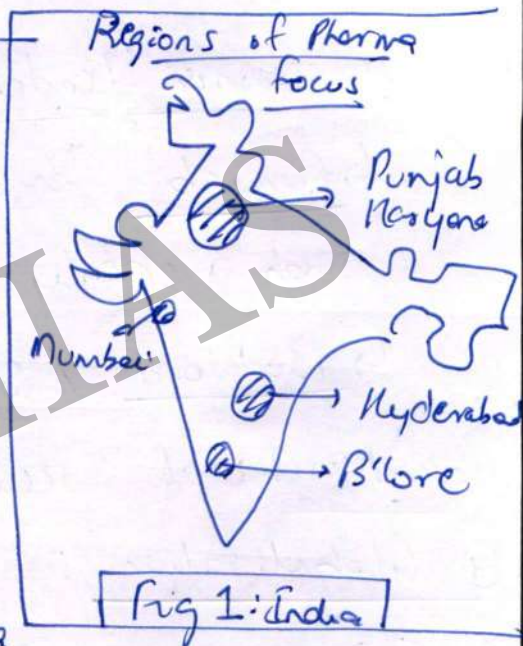 Regions of Pharma
focus
Punjab
Haryana
Mumbai
Hyderabad
B'lore
Fig 1: India
IAS